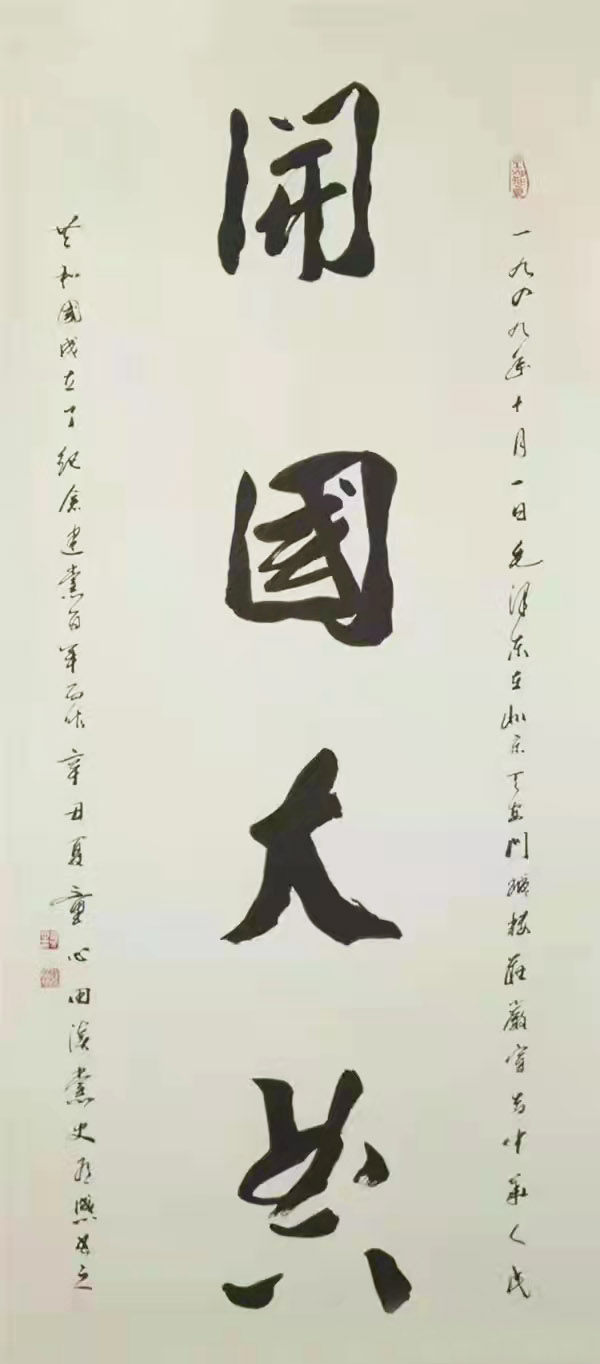 一九四九年十月一日毛泽东在北京天安門城楼莊嚴宣告中華人民
開國大典
共和國成立了紀念建黨百年而作辛丑夏童心田读黨史有感書之